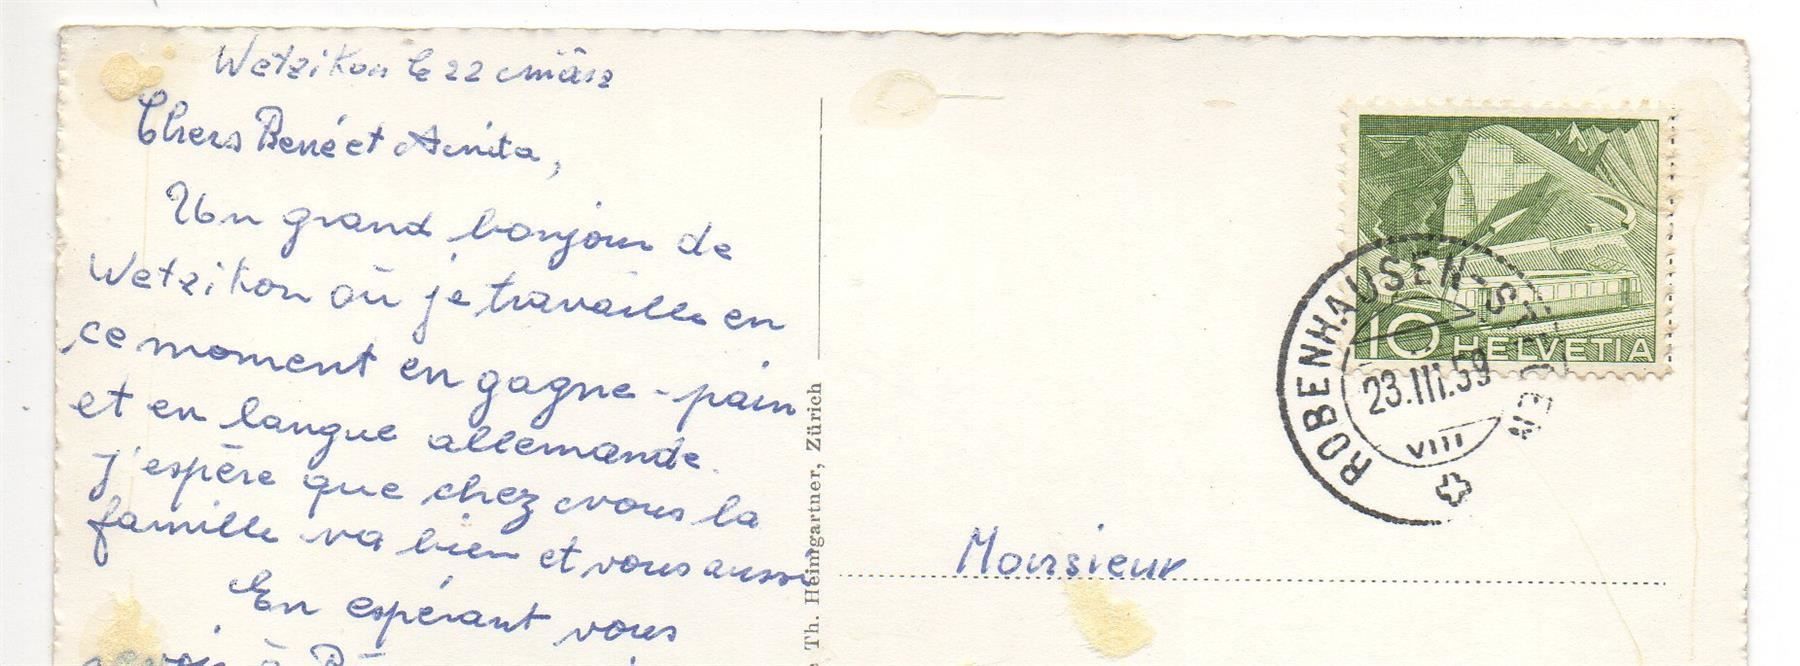 Wetzikon le 22 märz
Chers René et Anita,
Un grand bonjour de
Wetzikon où je travaille en
ce moment en gagne-pain
et en langue allemande.
J'espère que chez vous la
famille va bien et vous aussi
En espérant vous
Th. Heimgartner, Zürich
10 HELVETIA
ROBENHAUSEN-
23.III.59
VIII
Monsieur